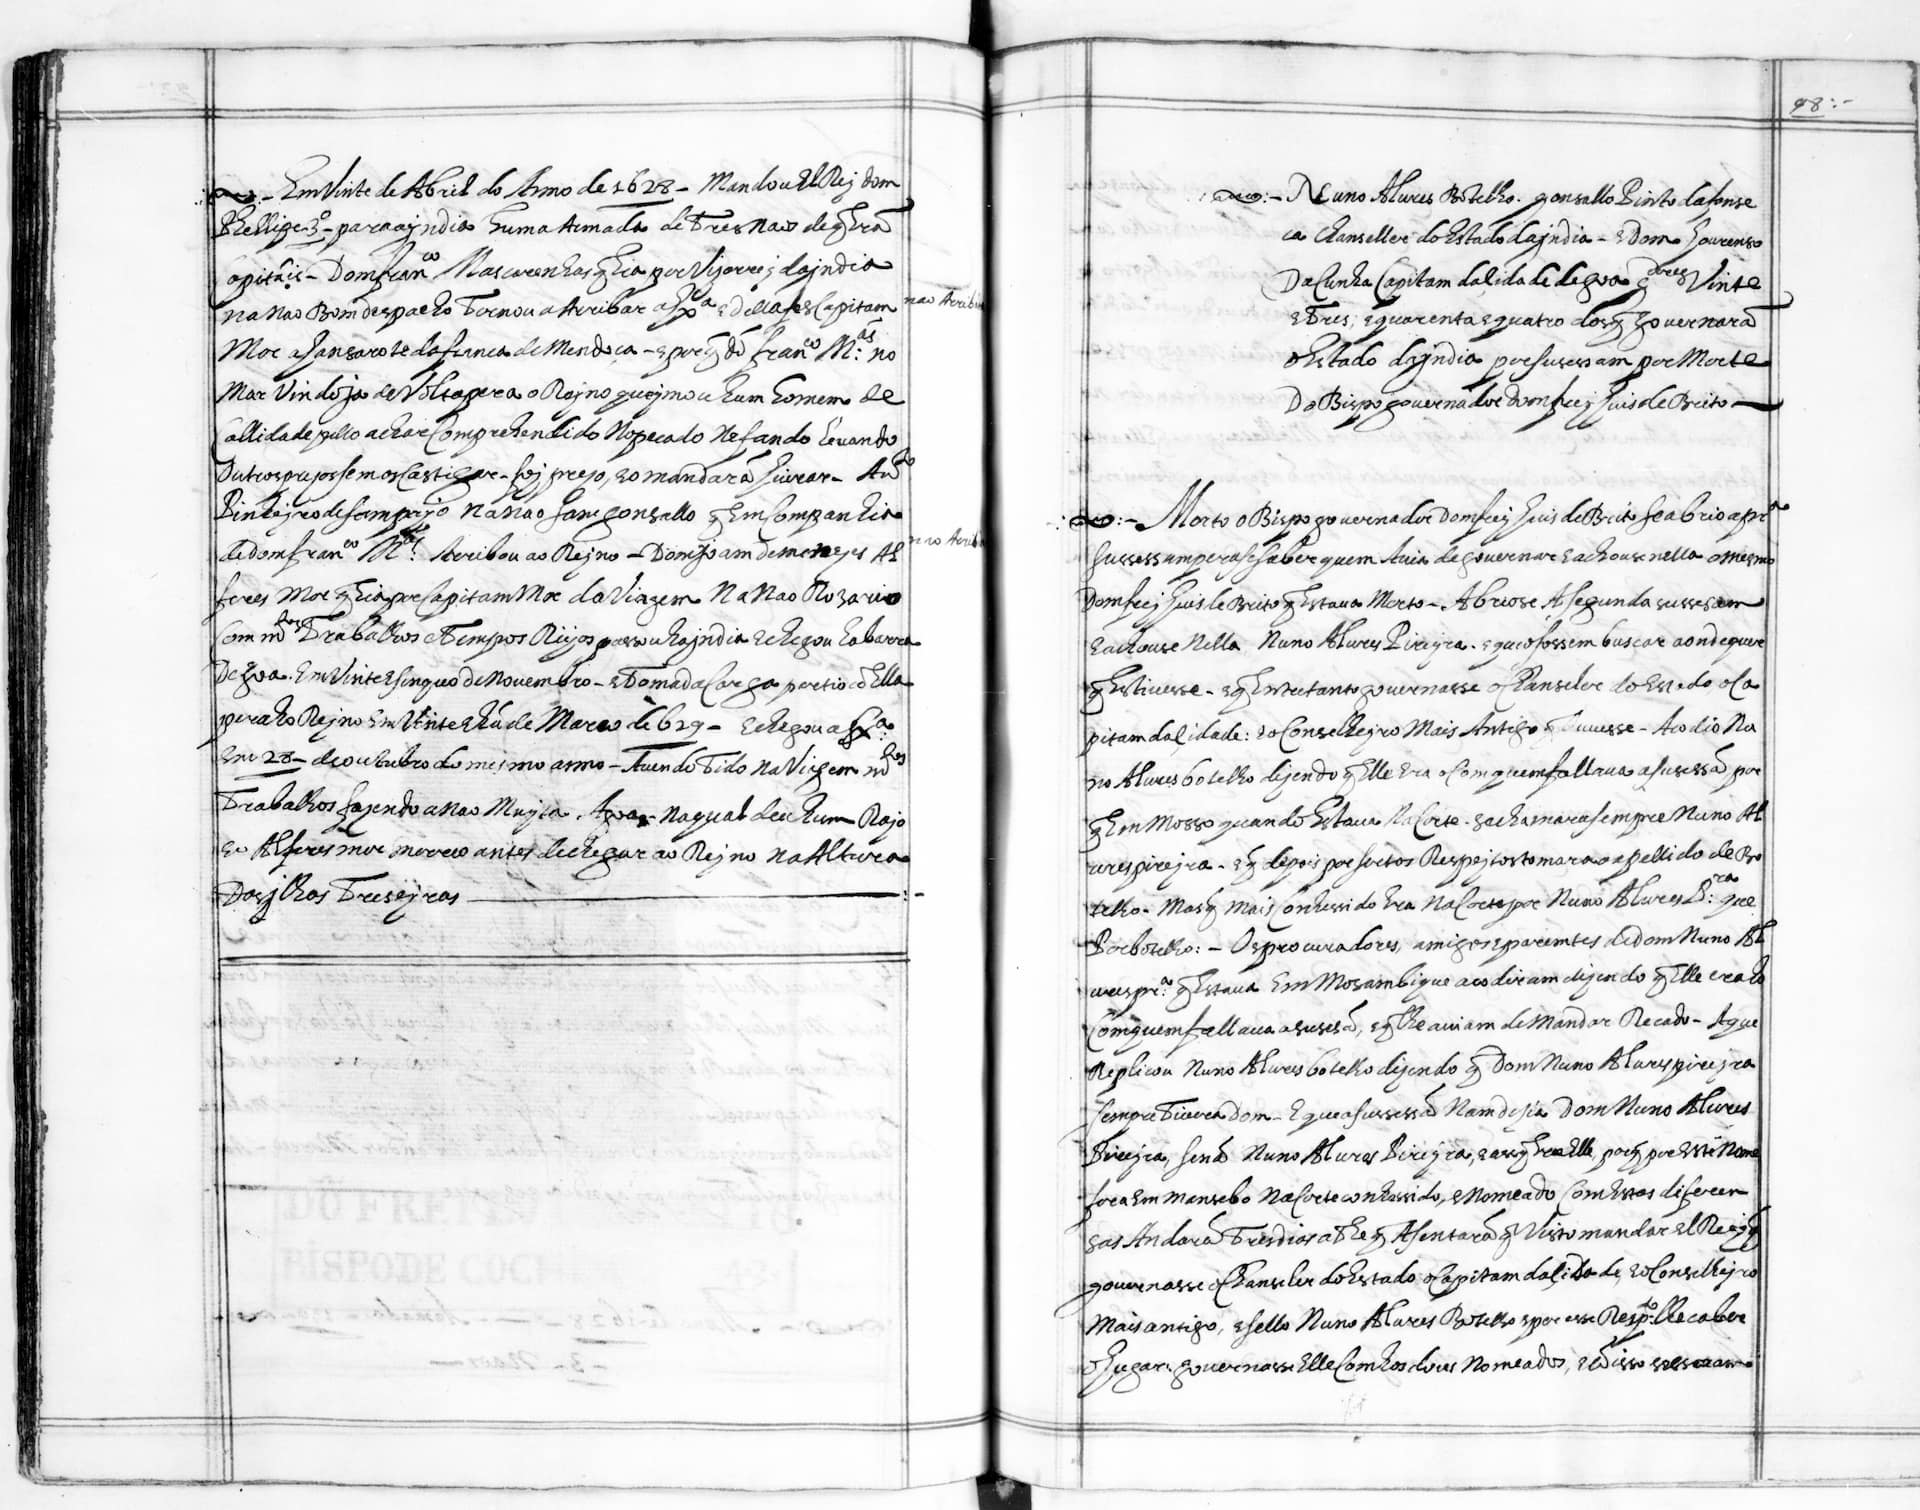 Em Vinte de Abril do Anno de 1628 - Mandou El Rej Dom
Phellipe 3º - para a jndia huma Armada de Tres Naos de q̃ Erã
Capitãis - Dom franco Mascarenhas q̃ hia por Visorrej da jndia
na Nao Bom despacho Tornou a Arribar a Lxª e della fes Capitam
nao Arribou
Mor a Lansarote da franca de Mendoça - e por q̃ dõ franco M.as no
Mar Vindo ja de Volta pera o Rejno quejmou hum homem de
Callidade pello achar Comprehendido No pecado Nefando Levando
Outros prezos sem os Castigar - foj prezo, e o mandarã Livrar - Anto
Pinhejro de sampajo na Nao sam gonsallo q̃ Em Companhia
de dom franco M.as Arribou ao Rejno - Dom joam de menezes Al
nao Arribou
feres Mor q̃ hia por Capitam Mor da Viagem Na Nao Rozario
Com mtos Trabalhos e Tempos Rijos passou ha jndia e chegou ha barra
De goa. Em Vinte e sinquo de Novembro - e Tomada Carga partio cõ Ella
pera ho Rejno Em Vinte e hũ de Marco de 629 - e chegou a Lxª:
Em 28 - de outubro do mesmo anno - Avendo Tido na Viagem mtos
Trabalhos fazendo a Nao Mujta Agoa, na qual deu hum Rajo
e o Alferes mor morreo antes de chegar ao Rejno na Altura
Das jlhas Treseyras
98:-
Nuno Alures Botelho. gonsallo Pinto da fonse
ca Chanseller do Estado da jndia - e Dom Lourenso
Da Cunha Capitam da Cidade de goa gores Vinte
e Tres, e quarenta e quatro dos q̃ governarã
o Estado da jndia por susessam por Morte
Do Bispo governador dom frej Luis de Brito
Morto o Bispo governador Dom frej Luis de Brito se abrio a prª
sussessam pera se saber quem Avia de governar e achouse nella o mesmo
Dom frej Luis de Brito q̃ Estava Morto - Abriose A segunda sussesam
e achouse Nella Nuno Alures Pirejra. e que o fossem buscar aonde quer
q̃ Estivesse - e q̃ Entretanto governasse o Chanseler do Estado o Ca
pitam da Cidade: e o Conselhejro Mais Antigo q̃ ouvesse - Acodio Nu
no Alures botelho dizendo q̃ Elle Era o Com quem fallava a susessã, por
q̃ Em Mosso quando Estava Na Corte se chamara sempre Nuno Al
ures pirejra - e q̃ depois por sertos Respejtos tomara o apellido de Bo
telho - Mas q̃ mais Conhessido Era Na Corte por Nuno Alures P.ra que
Por botelho: - Os procuradores, amigos e parentes de dom Nuno Al
ures prª q̃ Estava Em Mosambique acodiram dizendo q̃ Elle era ho
Com quem fallava a susesã, e q̃ lhe aviam de Mandar Recado - A que
Replicou Nuno Alures botelho dizendo q̃ Dom Nuno Alures pirejra
sempre Tivera Dom - E que a sussessã Nam dezia Dom Nuno Alures
Pirejra, senã Nuno Alures Pirejra, e assj q̃ hera Elle, porq̃ por Esse Nome
fora Em mansebo Na Corte conhessido, e Nomeado Com Estas diferen
sas Andarã Tres dias athe q̃ Asentarã q̃ Visto mandar El Rej q̃
governasse o Chanseler do Estado o Capitam da Cidade, e o Conselhejro
Mais antigo, e sello Nuno Alures Botelho e por esse Respto lhe caber
o Lugar, governasse Elle Com hos dous Nomeados, e cõ isso sessaram